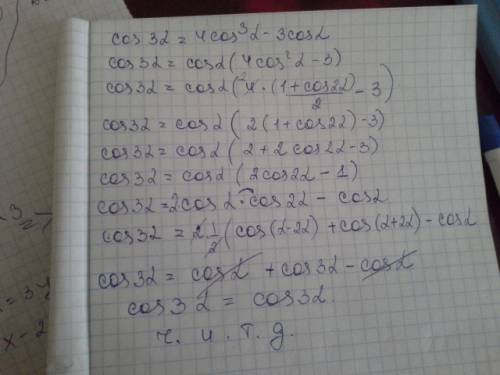 cos 3α = 4cos³α - 3cosα
cos 3α = cosα (4cos²α - 3)
cos 3α = cosα (4 · (1+cos2α)/2 - 3)
cos 3α = cosα (2(1+cos2α) - 3)
cos 3α = cosα (2 + 2cos2α - 3)
cos 3α = cosα (2cos2α - 1)
cos 3α = 2cosα · cos2α - cosα
cos 3α = 2·1/2 (cos(α-2α) + cos(α+2α) - cosα
cos 3α = cosα + cos3α - cosα
cos 3α = cos3α.
ч. и. т. д.